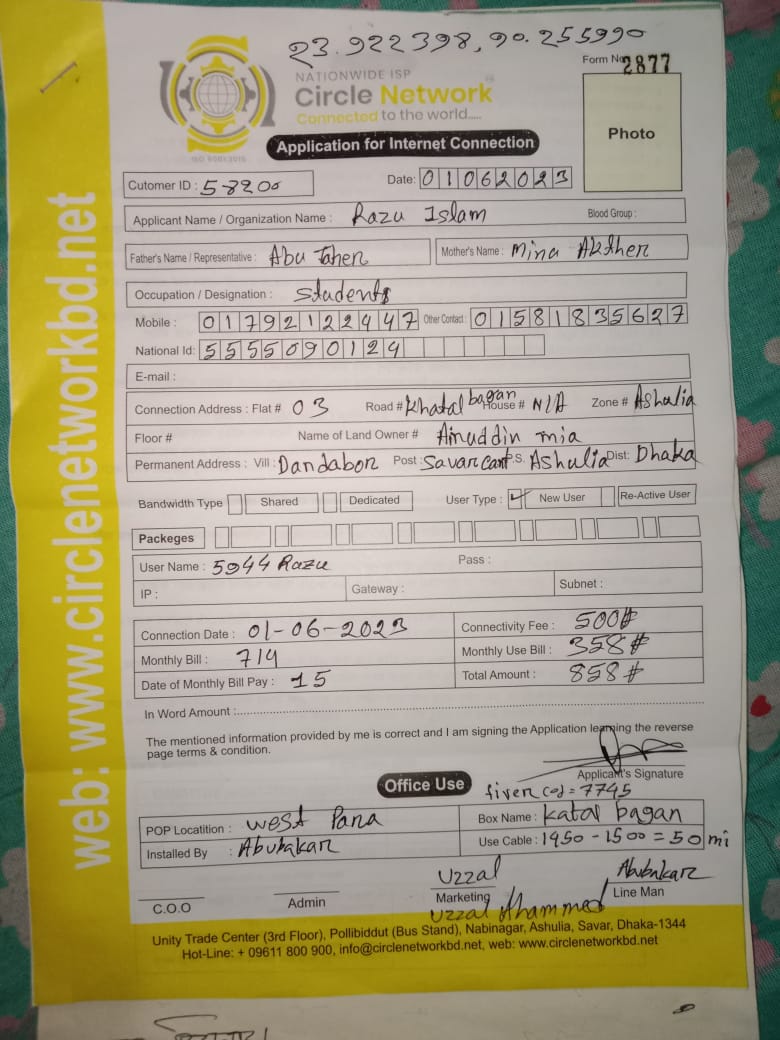 23.922398, 90.255990
NATIONWIDE ISP
Form No 2877
Circle Network
Connected to the world.....
ISO 9001:2015
Application for Internet Connection
Photo
Cutomer ID : 58200
Date: 01062023
Applicant Name / Organization Name : Razu Islam Blood Group :
Father's Name / Representative : Abu Taher Mother's Name : Mina Akther
Occupation / Designation : Students
Mobile : 01792122447 Other Contact : 01581835627
National Id: 5555090124
E-mail :
Connection Address : Flat # 03 Road # Khatal bagan House # N/A Zone # Ashulia
Floor # Name of Land Owner # Ainuddin mia
Permanent Address : Vill : Dandabor Post : Savar cant P.S. Ashulia Dist: Dhaka
Bandwidth Type Shared Dedicated User Type : ✓ New User Re-Active User
Packeges
User Name : 5944 Razu Pass :
IP : Gateway : Subnet :
Connection Date : 01-06-2023 Connectivity Fee : 500#
Monthly Bill : 714 Monthly Use Bill : 358#
Date of Monthly Bill Pay : 15 Total Amount : 858#
In Word Amount :
The mentioned information provided by me is correct and I am signing the Application learning the reverse
page terms & condition.
Applicant's Signature
Office Use
fiver cod = 7745
POP Locatition : West Para Box Name : Katal bagan
Installed By : Abubakar Use Cable : 1450 - 1500 = 50 mi
Uzzal Abubakar
C.O.O Admin Marketing Line Man
Uzzal Ahammed
Unity Trade Center (3rd Floor), Pollibiddut (Bus Stand), Nabinagar, Ashulia, Savar, Dhaka-1344
Hot-Line: + 09611 800 900, info@circlenetworkbd.net, web: www.circlenetworkbd.net
web: www.circlenetworkbd.net